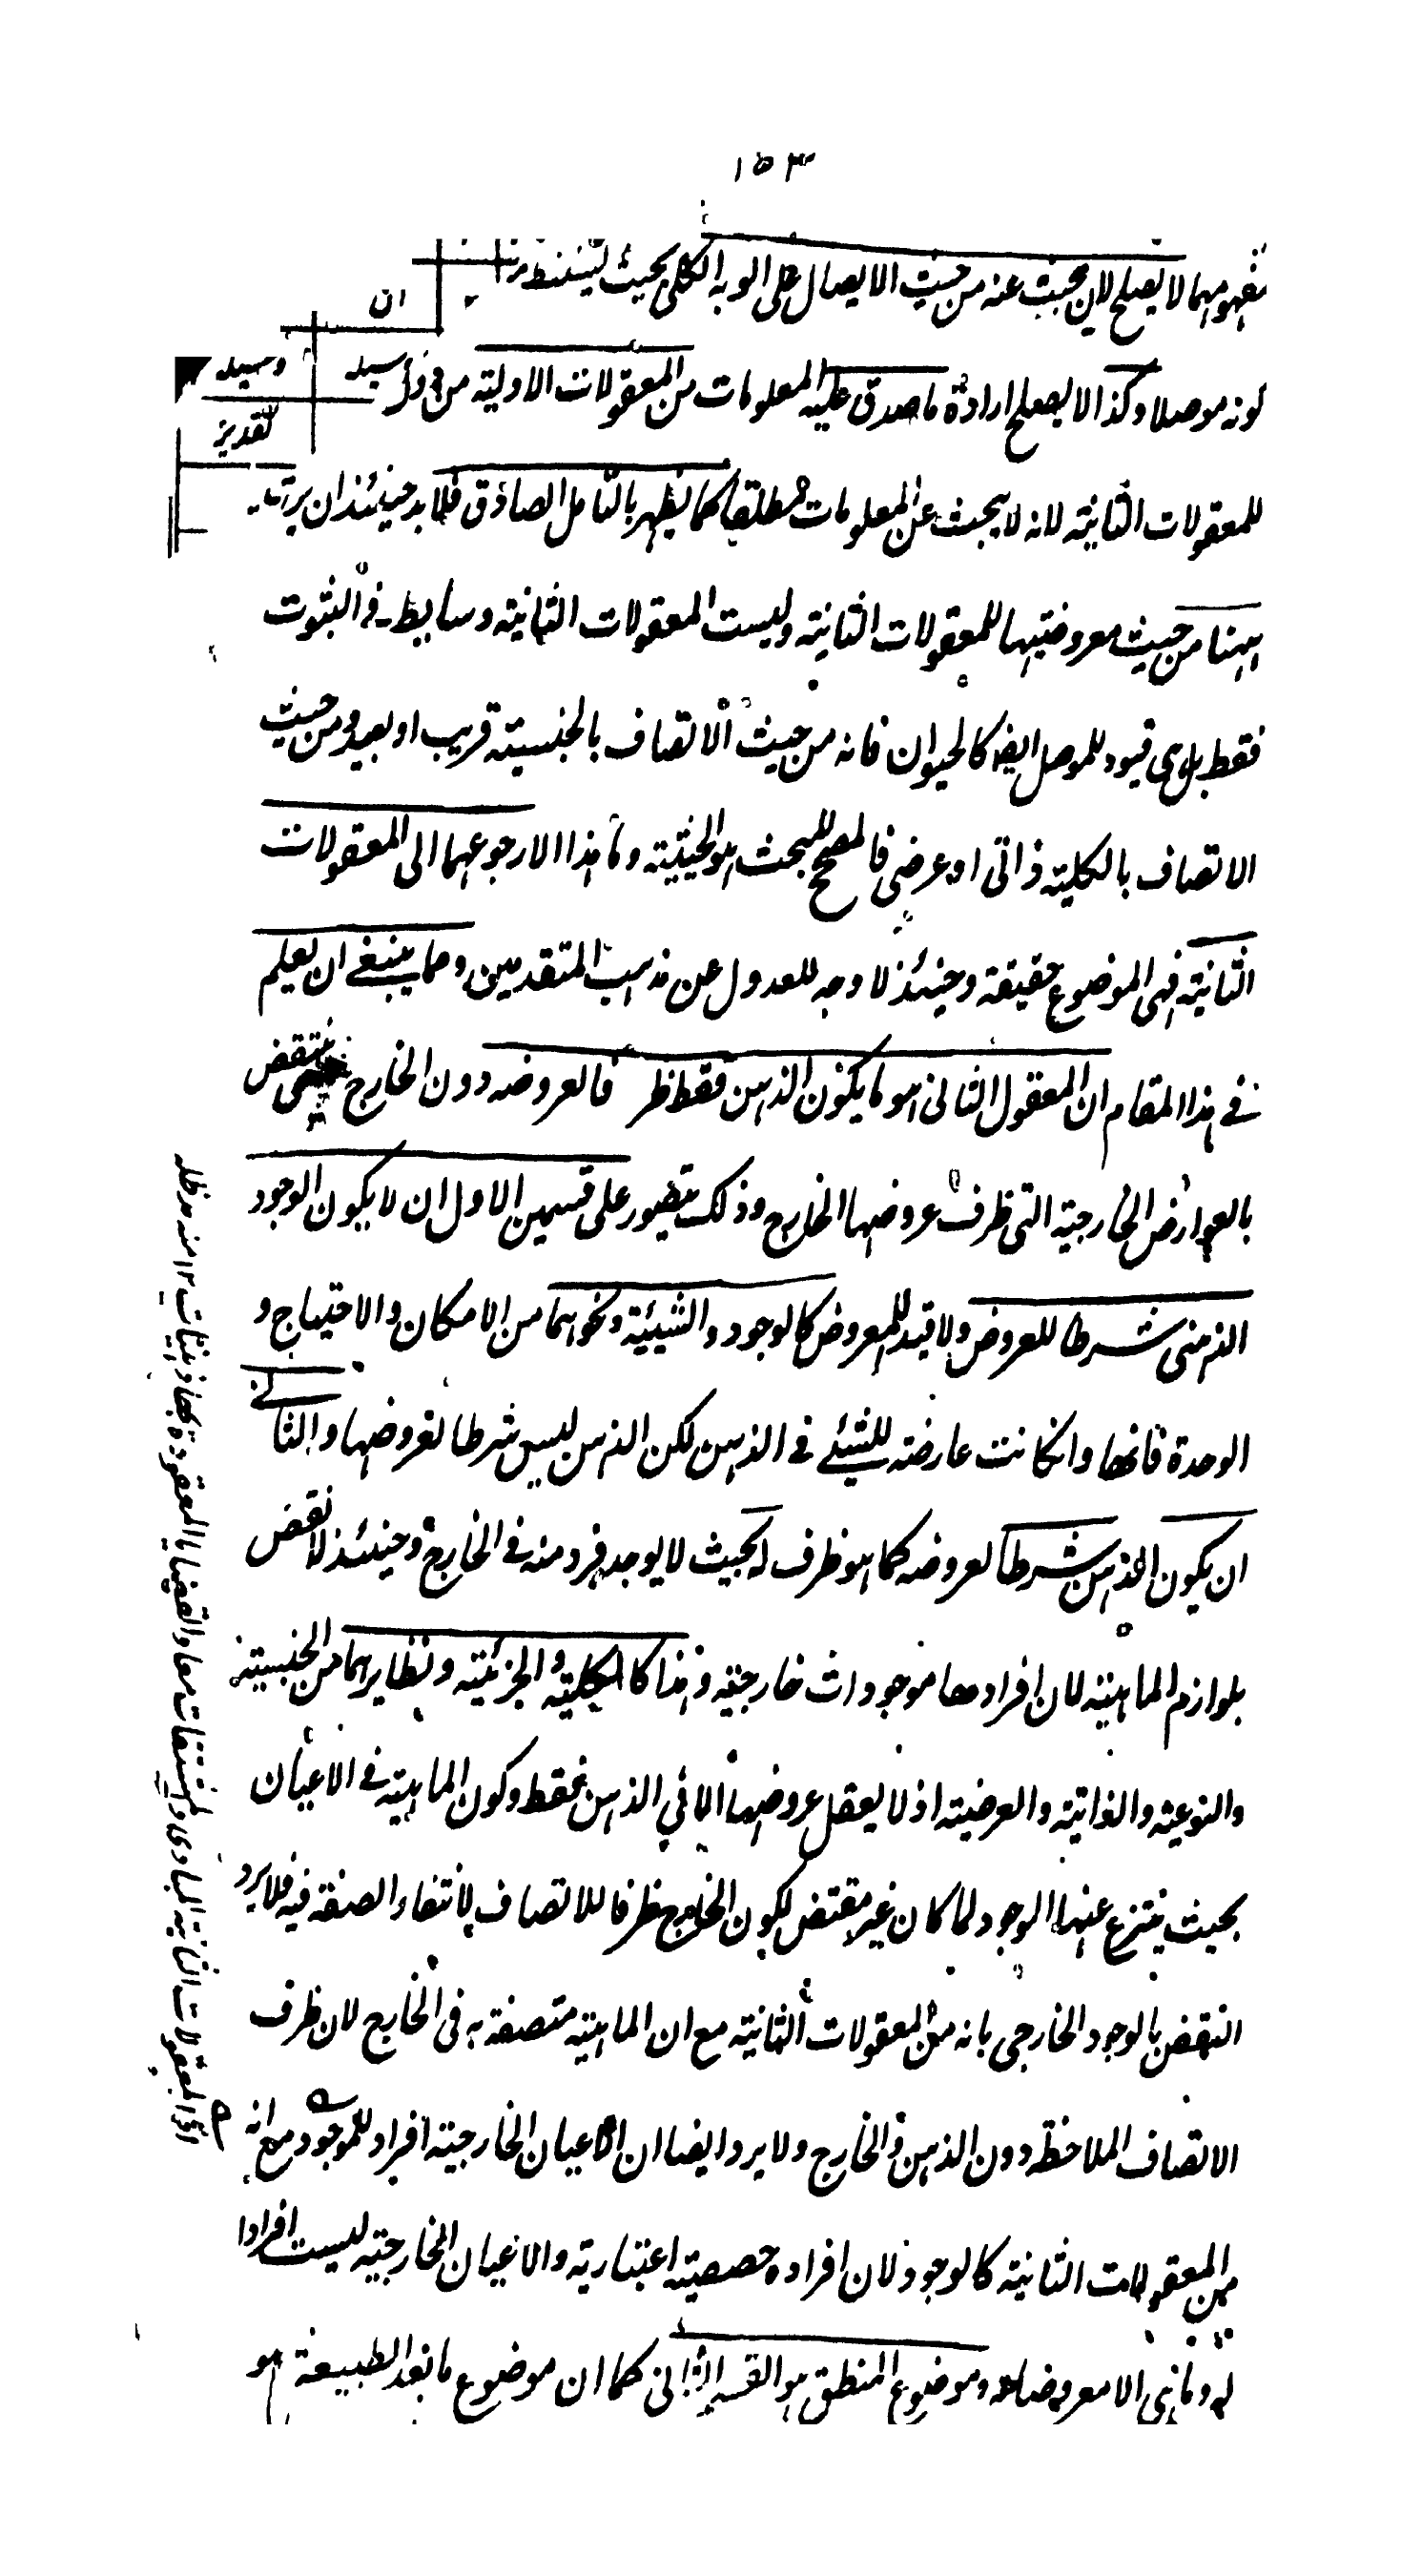 ١٥٣
مفهومهما لا يصلح لان يبحث عنه من حيث الايصال على الوجه الكلى بحيث
ان
كونه موصلا وكذا لا يصلح ارادة ما صدق عليه المعلومات من المعقولات الاولية من
وسيله
تقدير
للمعقولات الثانية لانه لا يبحث عن المعلومات مطلقا كما يظهر بالتامل الصادق فلا بد حينئذ ان يراد
ههنا من حيث معروضيتها للمعقولات الثانية وليست المعقولات الثانية وسايط فى الثبوت
فقط بل هى قيود للموصل ايضا كالحيوان فانه من حيث الاتصاف بالجنسية قريب او بعيد ومن حيث
الاتصاف بالكلية ذاتى او عرضى فالمصحح للبحث هو الحيثية وما هذا الا رجوعهما الى المعقولات
الثانية فهى الموضوع حقيقة وحينئذ لا وجه للعدول عن مذهب المتقدمين ومما ينبغى ان يعلم
فى هذا المقام ان المعقول الثانى هو ما يكون الذهن فقط ظرفا لعروضه دون الخارج فلا ينتقض
بالعوارض الخارجية التى ظرف عروضها الخارج وذلك يتصور على قسمين الاول ان لا يكون الوجود
الذهنى شرطا للعروض ولا قيد للمعروض كالوجود والشيئية ونحوهما من الامكان والاحتياج و
الوحدة فانها وان كانت عارضة للشئ فى الذهن لكن الذهن ليس شرطا لعروضها والثانى
ان يكون الذهن شرطا لعروضه كما هو ظرف له بحيث لا يوجد فرد منه فى الخارج وحينئذ لا نقض
بلوازم الماهية لان افرادها موجودات خارجية وهذا كالكلية والجزئية ونظايرهما من الجنسية
والنوعية والذاتية والعرضية اذ لا يعقل عروضها الا فى الذهن فقط وكون الماهية فى الاعيان
بحيث ينتزع عنها الوجود لما كان غير مقتض لكون الخارج ظرفا للاتصاف لانتفاء الصفة فيه فلا يرد
النقض بالوجود الخارجى بانه من المعقولات الثانية مع ان الماهية متصفة به فى الخارج لان ظرف
الاتصاف الملاحظة دون الذهن والخارج ولا يرد ايضا ان الاعيان الخارجية افراد للموجود مع انه
من المعقولات الثانية كالوجود لان افراده حصصية اعتبارية والاعيان الخارجية ليست افرادا
له وما هى الا معروضا له وموضوع المنطق هو القسم الثانى كما ان موضوع ما بعد الطبيعة هو
المعقولات الثانية المبادى والمشتقات معا والقضايا المعقودة بها ذهنيات ١٢ منه مد ظله